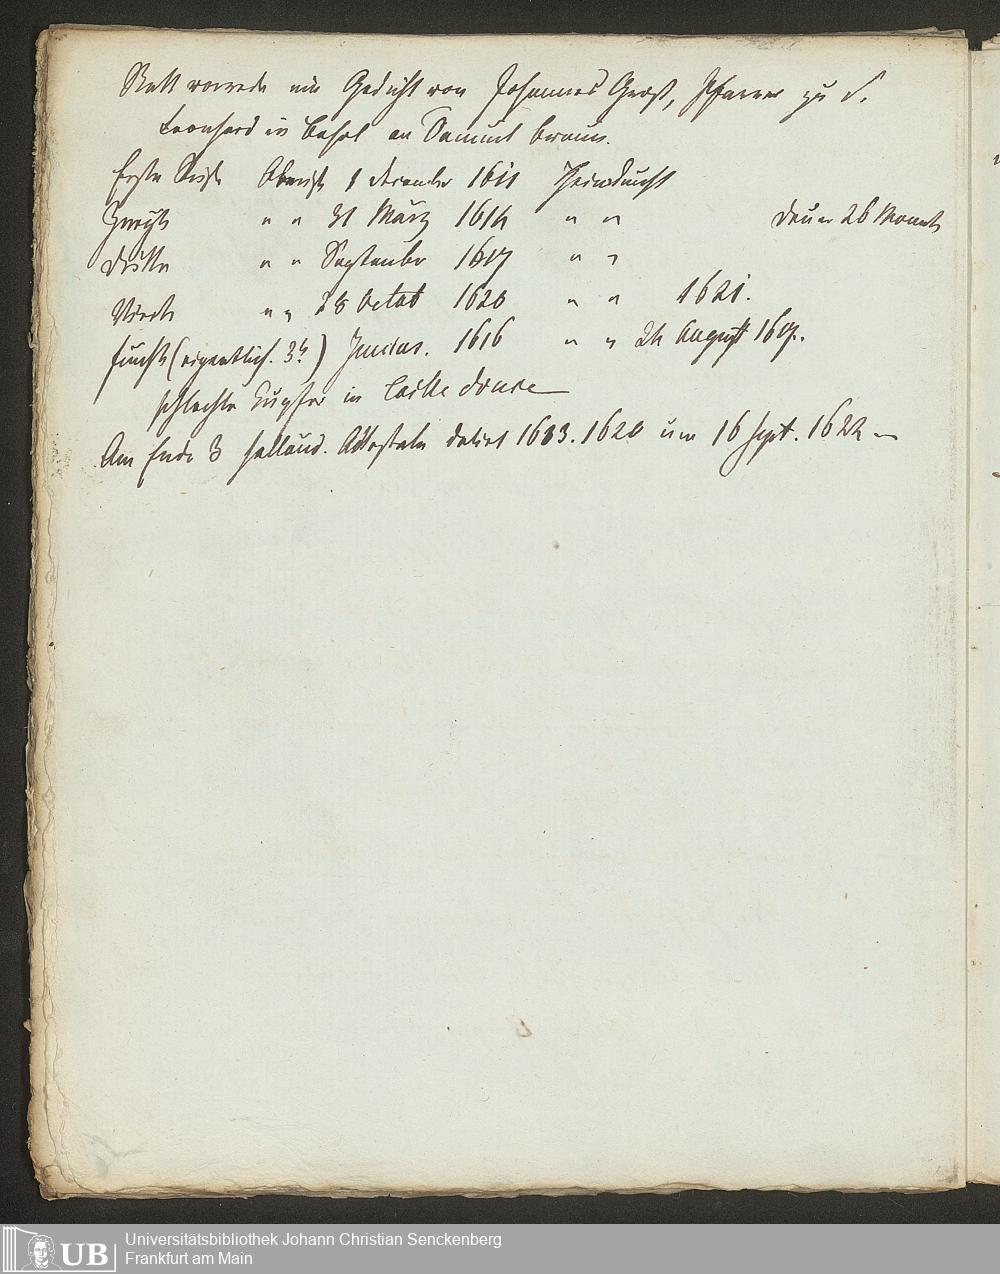 Statt vorrede ein Gedicht von Johannes Groß, Pfarrer zu S.
Leonhard in Basel an Samuel Braun.
Erste Reise Abreise 1 December 1611 Heimkunft
Zweyte " " 31 März 1614 " " Dauer 26 Monate
Dritte " " September 1617 " "
Vierte " " 28 Octob 1620 " " 1621.
fünfte (eigentlich. 3te) Junius. 1616 " " 24 August 1617.
schlechte Kupfer in
Am Ende 3 holländ. Attestate datirt 1613. 1620 u 16 Sept. 1622
UB
Universitätsbibliothek Johann Christian Senckenberg
Frankfurt am Main